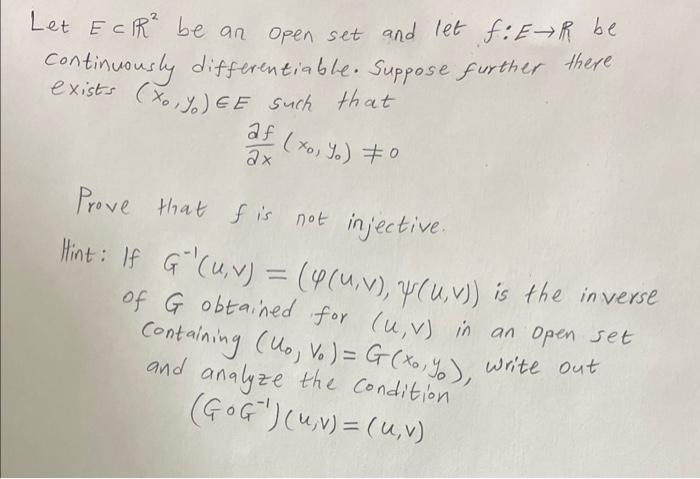 Let E ⊂ ℝ² be an open set and let f: E→ℝ be
continuously differentiable. Suppose further there
exists (x₀, y₀) ∈ E such that
∂f/∂x (x₀, y₀) ≠ 0
Prove that f is not injective.
Hint: If G⁻¹(u,v) = (φ(u,v), ψ(u,v)) is the inverse
of G obtained for (u,v) in an open set
containing (u₀, v₀) = G(x₀, y₀), write out
and analyze the condition
(G∘G⁻¹)(u,v) = (u,v)